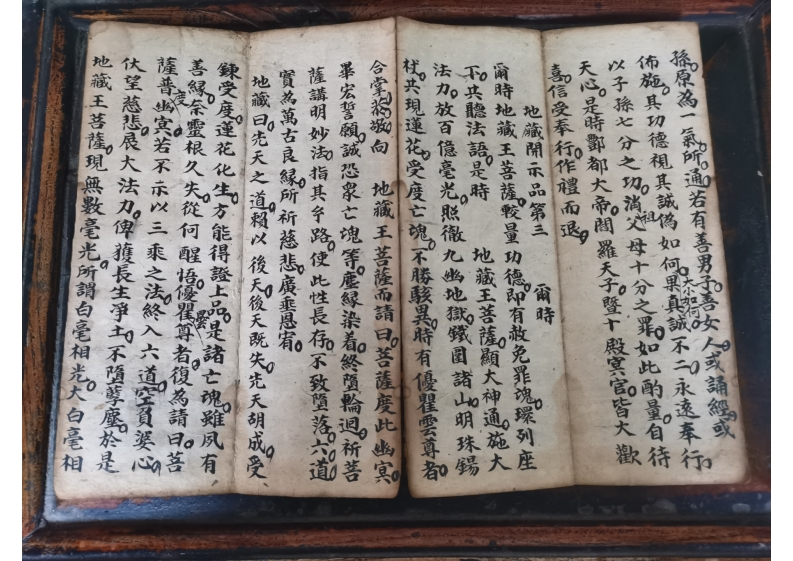 孫原為一氣所通若有善男子善女人或誦經或
佈施其功德視其誠偽如何果真誠不二永遠奉行
以子孫七分之功消父祖母十分之罪如此酌量自待
天心是時酆都大帝閻羅天子暨十殿冥官皆大歡
喜信受奉行作禮而退
地藏開示品第三
爾時
爾時地藏王菩薩較量功德即有赦免罪魂環列座
下共聽法語是時 地藏王菩薩顯大神通施大
法力放百億毫光照徹九幽地獄鐵圍諸山明珠錫
杖共現蓮花受度亡魂不勝駭異時有優瞿雲尊者
合掌恭敬向 地藏王菩薩而請曰菩薩度此幽冥
畢宏誓願誠恐衆亡魂等塵緣染着終墮輪迴祈菩
薩講明妙法指其牟路使此性長存不致墮落六道
實為萬古良緣所祈慈悲廣垂恩宥
地藏曰先天之道賴以後天後天既失先天胡成受
鍊受度蓮花化生方能得證上品是諸亡魂雖夙有
善緣奈靈根久失從何醒悟優瞿曇尊者復為請曰菩
薩普度幽冥若不示以三乘之法終入六道空負婆心
伏望慈悲展大法力俾獲長生淨土不墮孽塵於是
地藏王菩薩現無數毫光所謂白毫相光大白毫相